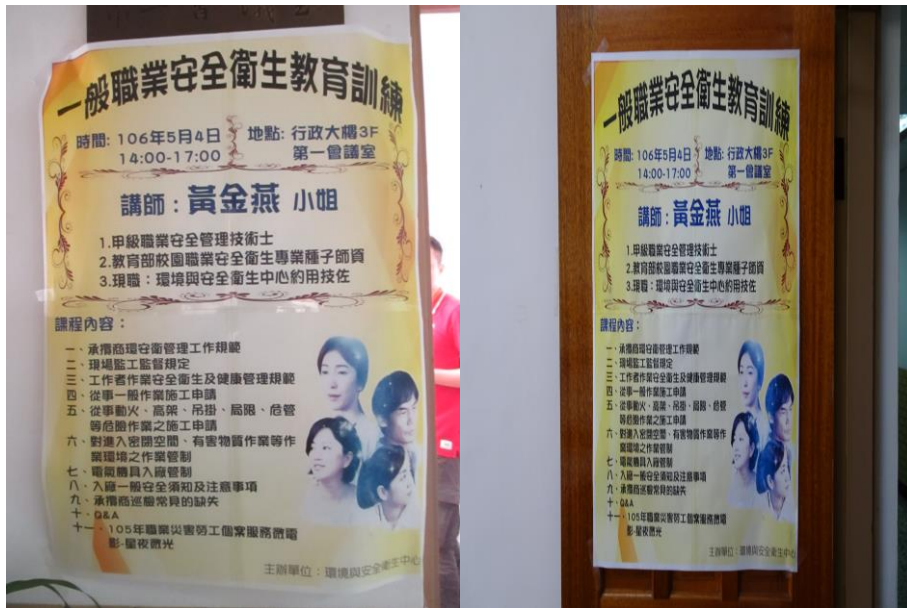 一般職業安全衛生教育訓練
時間: 106年5月4日 地點: 行政大樓3F
14:00-17:00 第一會議室
講師：黃金燕 小姐
1.甲級職業安全管理技術士
2.教育部校園職業安全衛生專業種子師資
3.現職：環境與安全衛生中心約用技佐
課程內容：
一、承攬商環安衛管理工作規範
二、現場監工監督規定
三、工作者作業安全衛生及健康管理規範
四、從事一般作業施工申請
五、從事動火、高架、吊掛、局限、危管
等危險作業之施工申請
六、對進入密閉空間、有害物質作業等作
業環境之作業管制
七、電氣機具入廠管制
八、入廠一般安全須知及注意事項
九、承攬商巡檢常見的缺失
十、Q&A
十一、105年職業災害勞工個案服務微電
影-星夜微光
主辦單位：環境與安全衛生中心
一般職業安全衛生教育訓練
時間: 106年5月4日 地點: 行政大樓3F
14:00-17:00 第一會議室
講師：黃金燕 小姐
1.甲級職業安全管理技術士
2.教育部校園職業安全衛生專業種子師資
3.現職：環境與安全衛生中心約用技佐
課程內容：
一、承攬商環安衛管理工作規範
二、現場監工監督規定
三、工作者作業安全衛生及健康管理規範
四、從事一般作業施工申請
五、從事動火、高架、吊掛、局限、危管
等危險作業之施工申請
六、對進入密閉空間、有害物質作業等作
業環境之作業管制
七、電氣機具入廠管制
八、入廠一般安全須知及注意事項
九、承攬商巡檢常見的缺失
十、Q&A
十一、105年職業災害勞工個案服務微電
影-星夜微光
主辦單位：環境與安全衛生中心